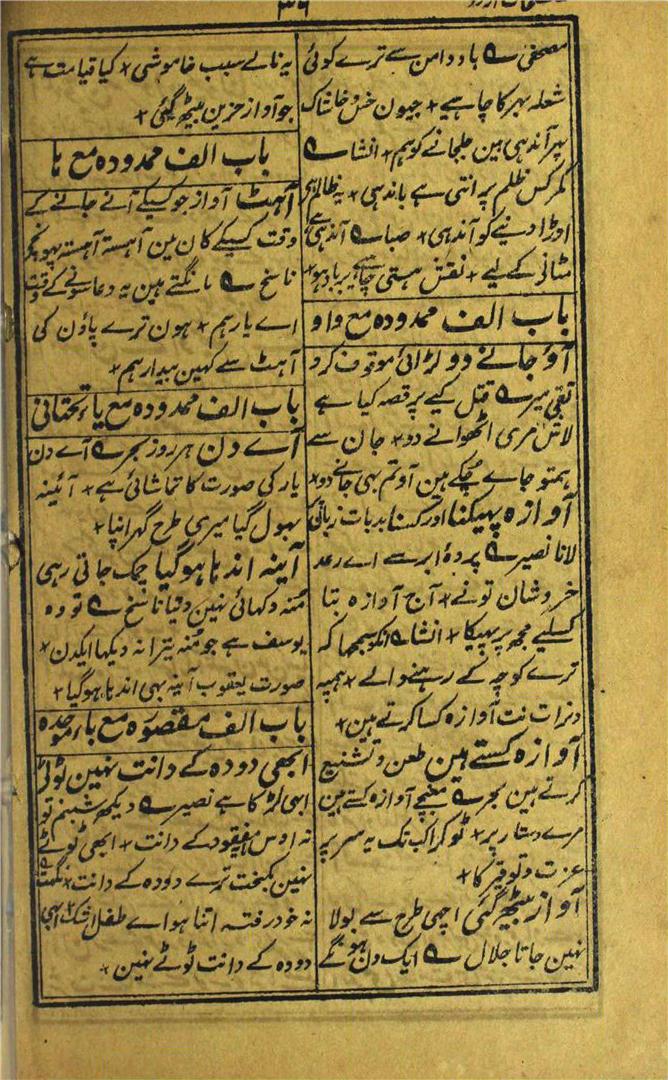 ۳۶
مصحفی ؎ باد دامن سے ترے کوئی
شعلہ بہر کا چاہیے ٭ جیون خس و خاشاک
پہر آندہی مین جلجانے کو ہم ٭ انشا ؎
کمر کس ظلم پر اتنی ہے باندہی ٭ یہ ظالم ہی
اوڑا دینے کو آندہی ٭ صبا ؎ آندہی ہے
مٹانی کے لیے ٭ نقش ہستی چاہیے برباد ہو ٭
باب الف ممدودہ مع واو
آؤ جانے دو لڑائی موقوف کرو
تقی میر ؎ قتل کیے پر قصہ کیا ہے
لاش مری اٹھوانے دو ٭ جان سے
ہمتو جا ے چکے ہین آؤ تم بہی جانے دو ٭
آوازہ پہیکنا اور کسنا بد بات زبانی
لانا نصیر ؎ پردۂ ابر سے اے رعد
خروشان تونے ٭ آج آوازہ بتا
کسلیے مجھ پر پہیکا ٭ انشا ؎ انکو سمجھا کہ
ترے کوچہ کے رہنے والے ٭ ہمپہ
دنرات نت آوازہ کسا کرتے ہین ٭
آوازہ کستے ہین طعن و تشنیع
کرتے ہین بحر ؎ مغبچے آوازہ کستے ہین
مرے دستار پر ٭ ٹوکرا کب تک یہ سر پر
عزت و توقیر کا ٭
آواز بیٹھ گئی اچھی طرح سے بولا
نہین جاتا جلال ؎ ایک دن ہونگے
یہ نالے سبب خاموشی ٭ کیا قیامت ہے
جو آواز حزین بیٹھ گئی ٭
باب الف ممدودہ مع ہا
آہٹ آواز جو کسیکے آنے جانے کے
وقت کسیکے کان مین آہستہ آہستہ پہونچے
ناسخ ؎ مانگتے ہین یہ دعا سونے کے وقت
اے یار ہم ٭ ہون ترے پاؤن کی
آہٹ سے کہین بیدار ہم ٭
باب الف ممدودہ مع یاء تحتانی
آے دن ہر روز بحر ؎ آے دن
یار کی صورت کا تماشائی ہے ٭ آئینہ
بہول گیا میری طرح گہر اپنا ٭
آینہ اندہا ہو گیا چمک جاتی رہی
منہ دکہائی نہین دیتا ناسخ ؎ تو وہ
یوسف ہے جو منہ تیرا نہ دیکہا ایکدن ٭
صورت یعقوب آینہ بہی اندہا ہو گیا ٭
باب الف مقصورہ مع باء موحدہ
ابھی دودہ کے دانت نہین ٹوٹے
ابہی لڑکا ہے نصیر ؎ دیکھ شبنم تو
نہ اوس دودکے دانت ٭ ابھی ٹوٹے
نہین کمبخت ترے دودہ کے دانت ٭ نکہت ؎
نہ خود رفتہ اتنا ہو اے طفل اشک ٭ ابہی
دودہ کے دانت ٹوٹے نہین ٭